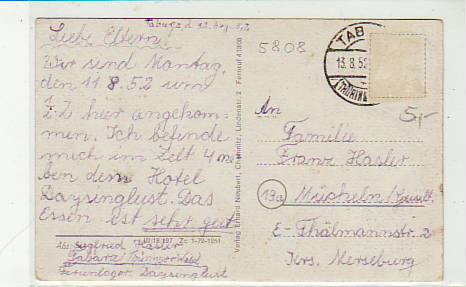 Tabarz d. 12. Aug. 52
Liebe Eltern.
Wir sind Montag,
den 11 8. 52 um
hier angekom-
men. Ich befinde
mich im Zelt 4 ne
ben dem Hotel
Daysinglust. Das
Essen ist sehr gut
Abs: Siegfried Hasler
Tabarz (Thüringer Wald)
Ferienlager Daysinglust
III/18/197 Zc 1-72-1951
Verlag Erhard Neubert, Chemnitz, Lindenstr. 2 Fernruf 41908
5808
TAB
13. 8. 52
(THÜRING
5,-
An
Familie
Franz Hasler
19a Mücheln/Geiselt.
E-Thälmannstr. 2
Krs. Merseburg